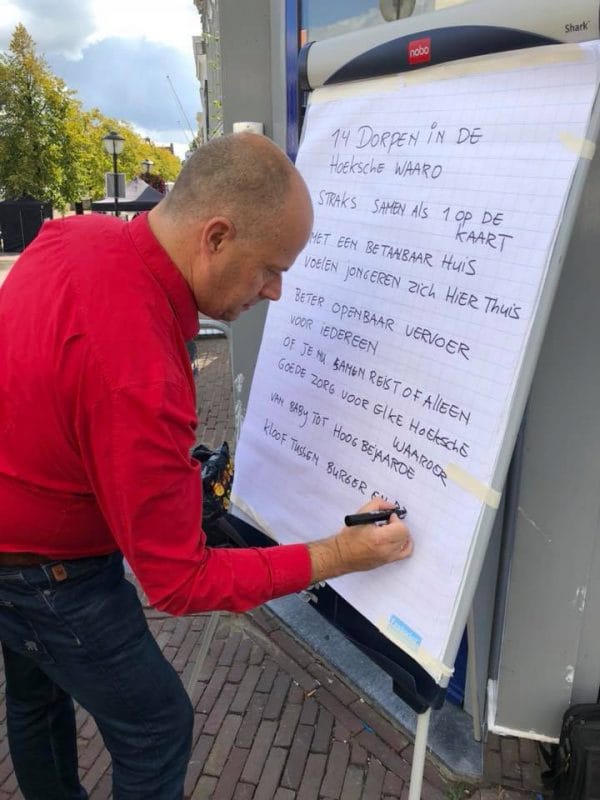 nobo
Shark
14 DORPEN IN DE
HOEKSCHE WAARD
STRAKS SAMEN ALS 1 OP DE
KAART
MET EEN BETAALBAAR HUIS
VOELEN JONGEREN ZICH HIER THUIS
BETER OPENBAAR VERVOER
VOOR IEDEREEN
OF JE NU SAMEN REIST OF ALLEEN
GOEDE ZORG VOOR ELKE HOEKSCHE
WAARDER
VAN BABY TOT HOOG BEJAARDE
KLOOF TUSSEN BURGER EN